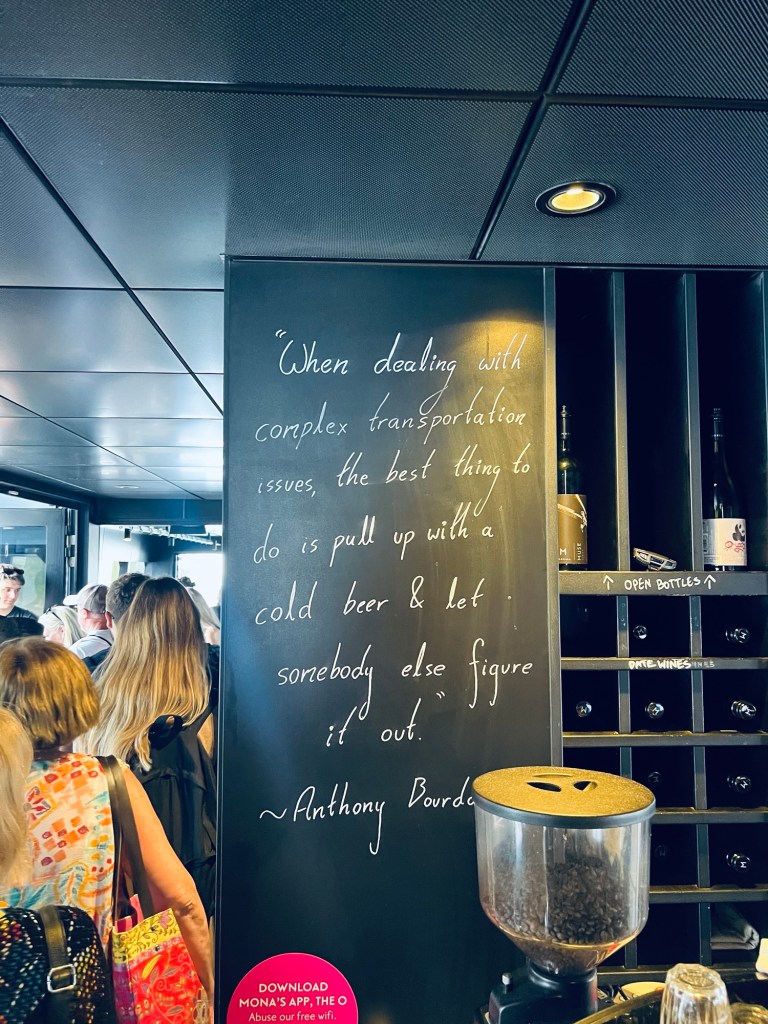 "When dealing with
complex transportation
issues, the best thing to
do is pull up with a
cold beer & let
somebody else figure
it out."
~Anthony Bourda
↑ OPEN BOTTLES ↑
DATE WINES
M
MUSE
&
DOWNLOAD
MONA'S APP, THE O
Abuse our free wifi.